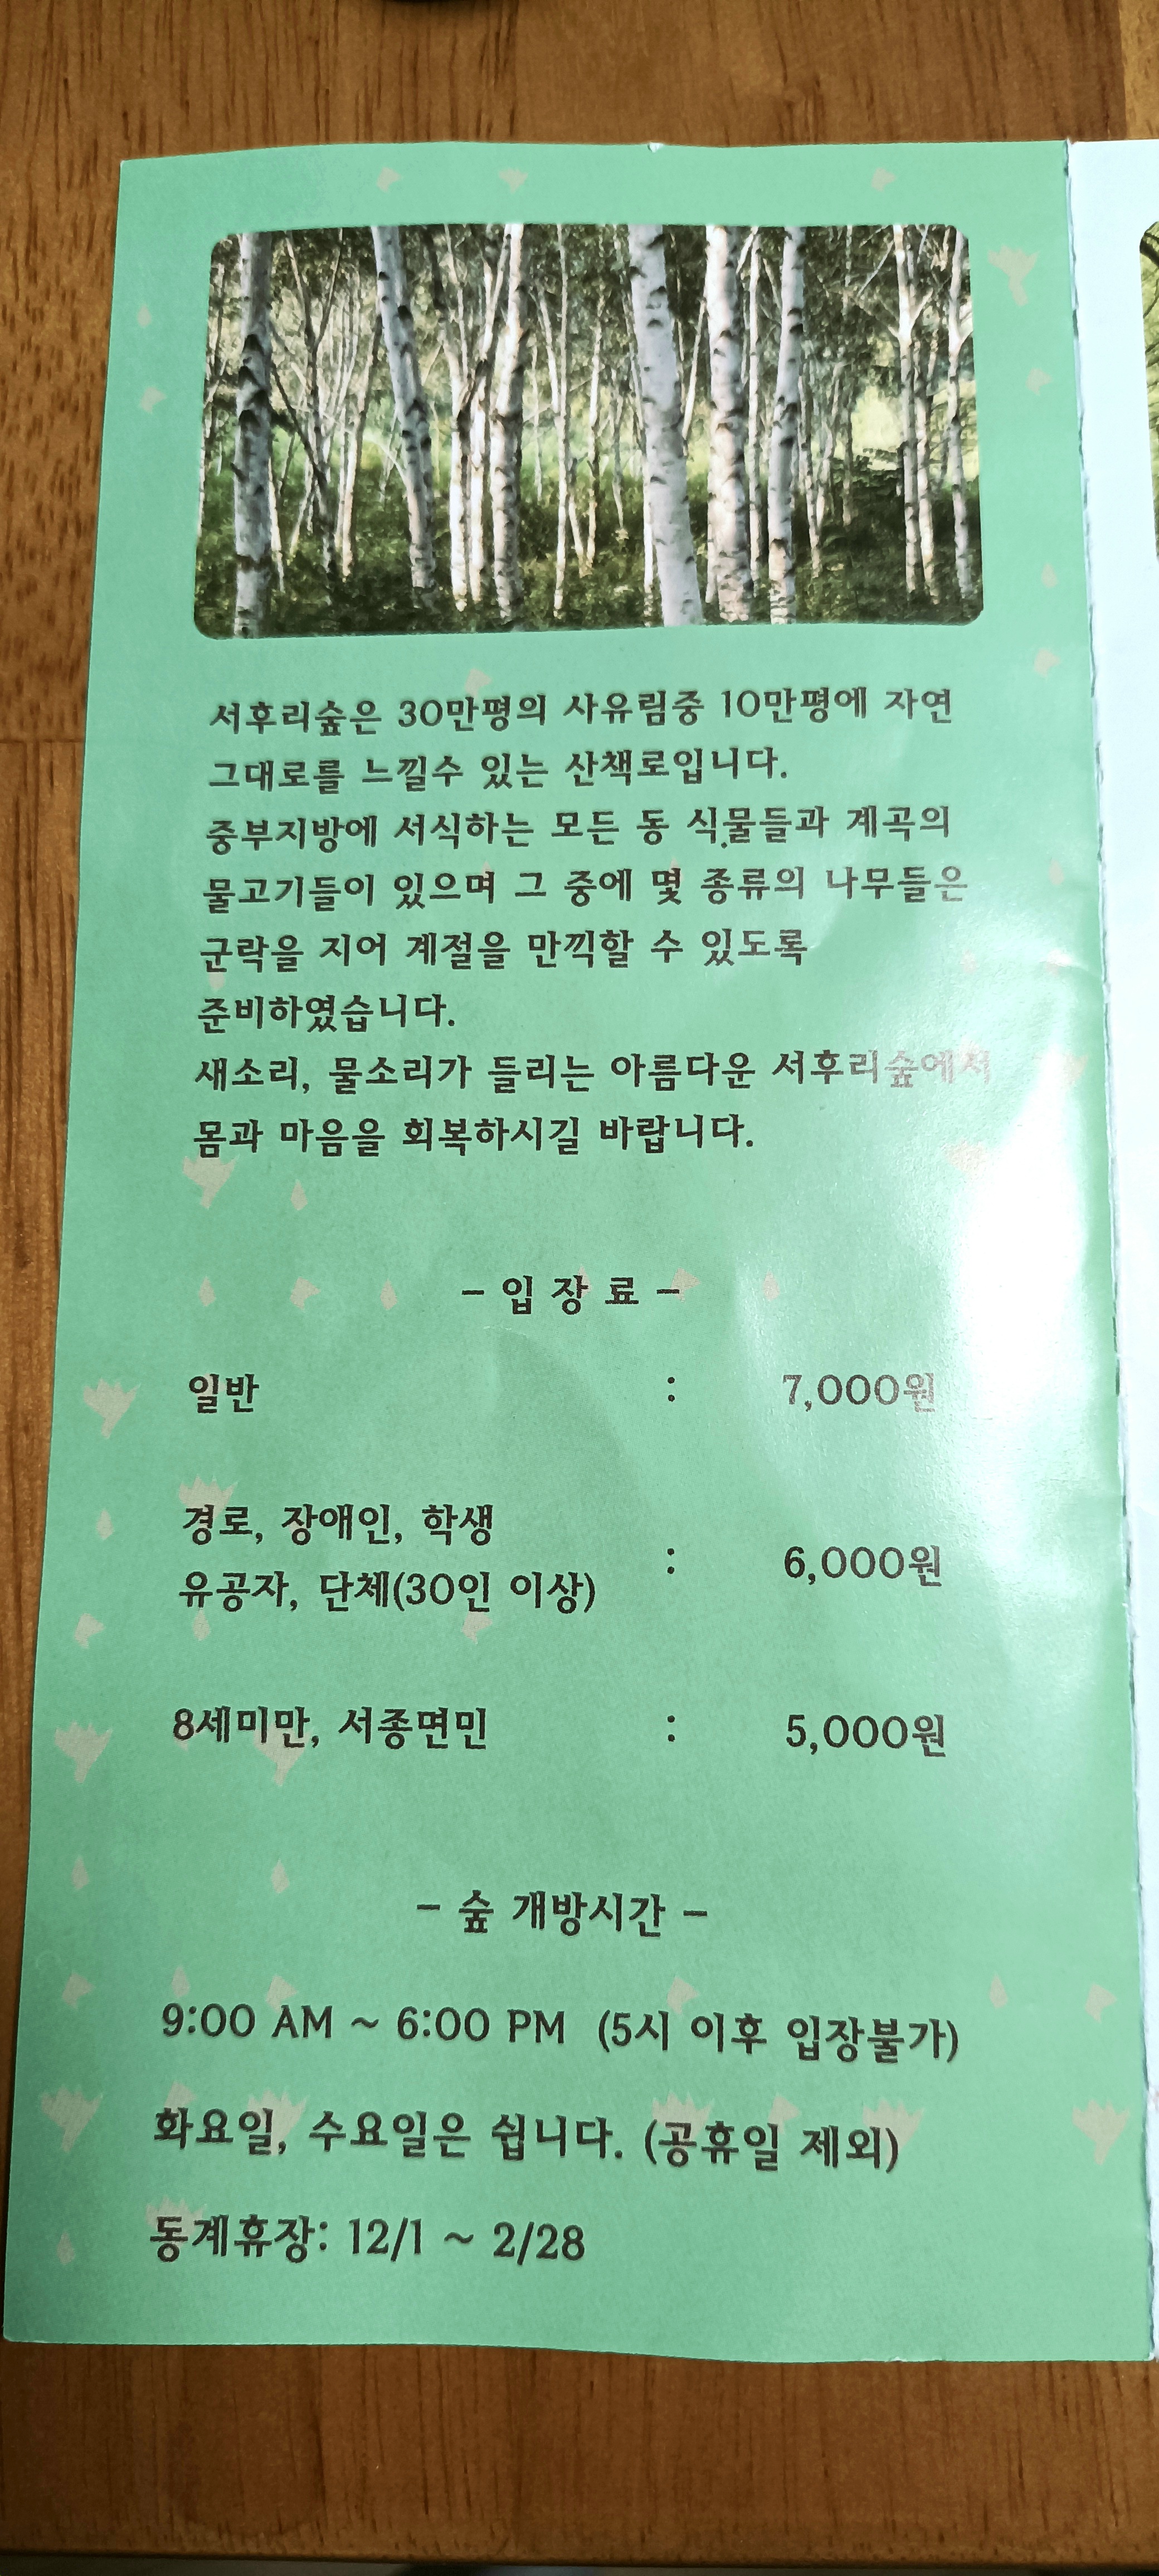 서후리숲은 30만평의 사유림중 10만평에 자연
그대로를 느낄수 있는 산책로입니다.
중부지방에 서식하는 모든 동 식물들과 계곡의
물고기들이 있으며 그 중에 몇 종류의 나무들은
군락을 지어 계절을 만끽할 수 있도록
준비하였습니다.
새소리, 물소리가 들리는 아름다운 서후리숲에서
몸과 마음을 회복하시길 바랍니다.
- 입 장 료 -
일반 : 7,000원
경로, 장애인, 학생
유공자, 단체(30인 이상) : 6,000원
8세미만, 서종면민 : 5,000원
- 숲 개방시간 -
9:00 AM ~ 6:00 PM (5시 이후 입장불가)
화요일, 수요일은 쉽니다. (공휴일 제외)
동계휴장: 12/1 ~ 2/28